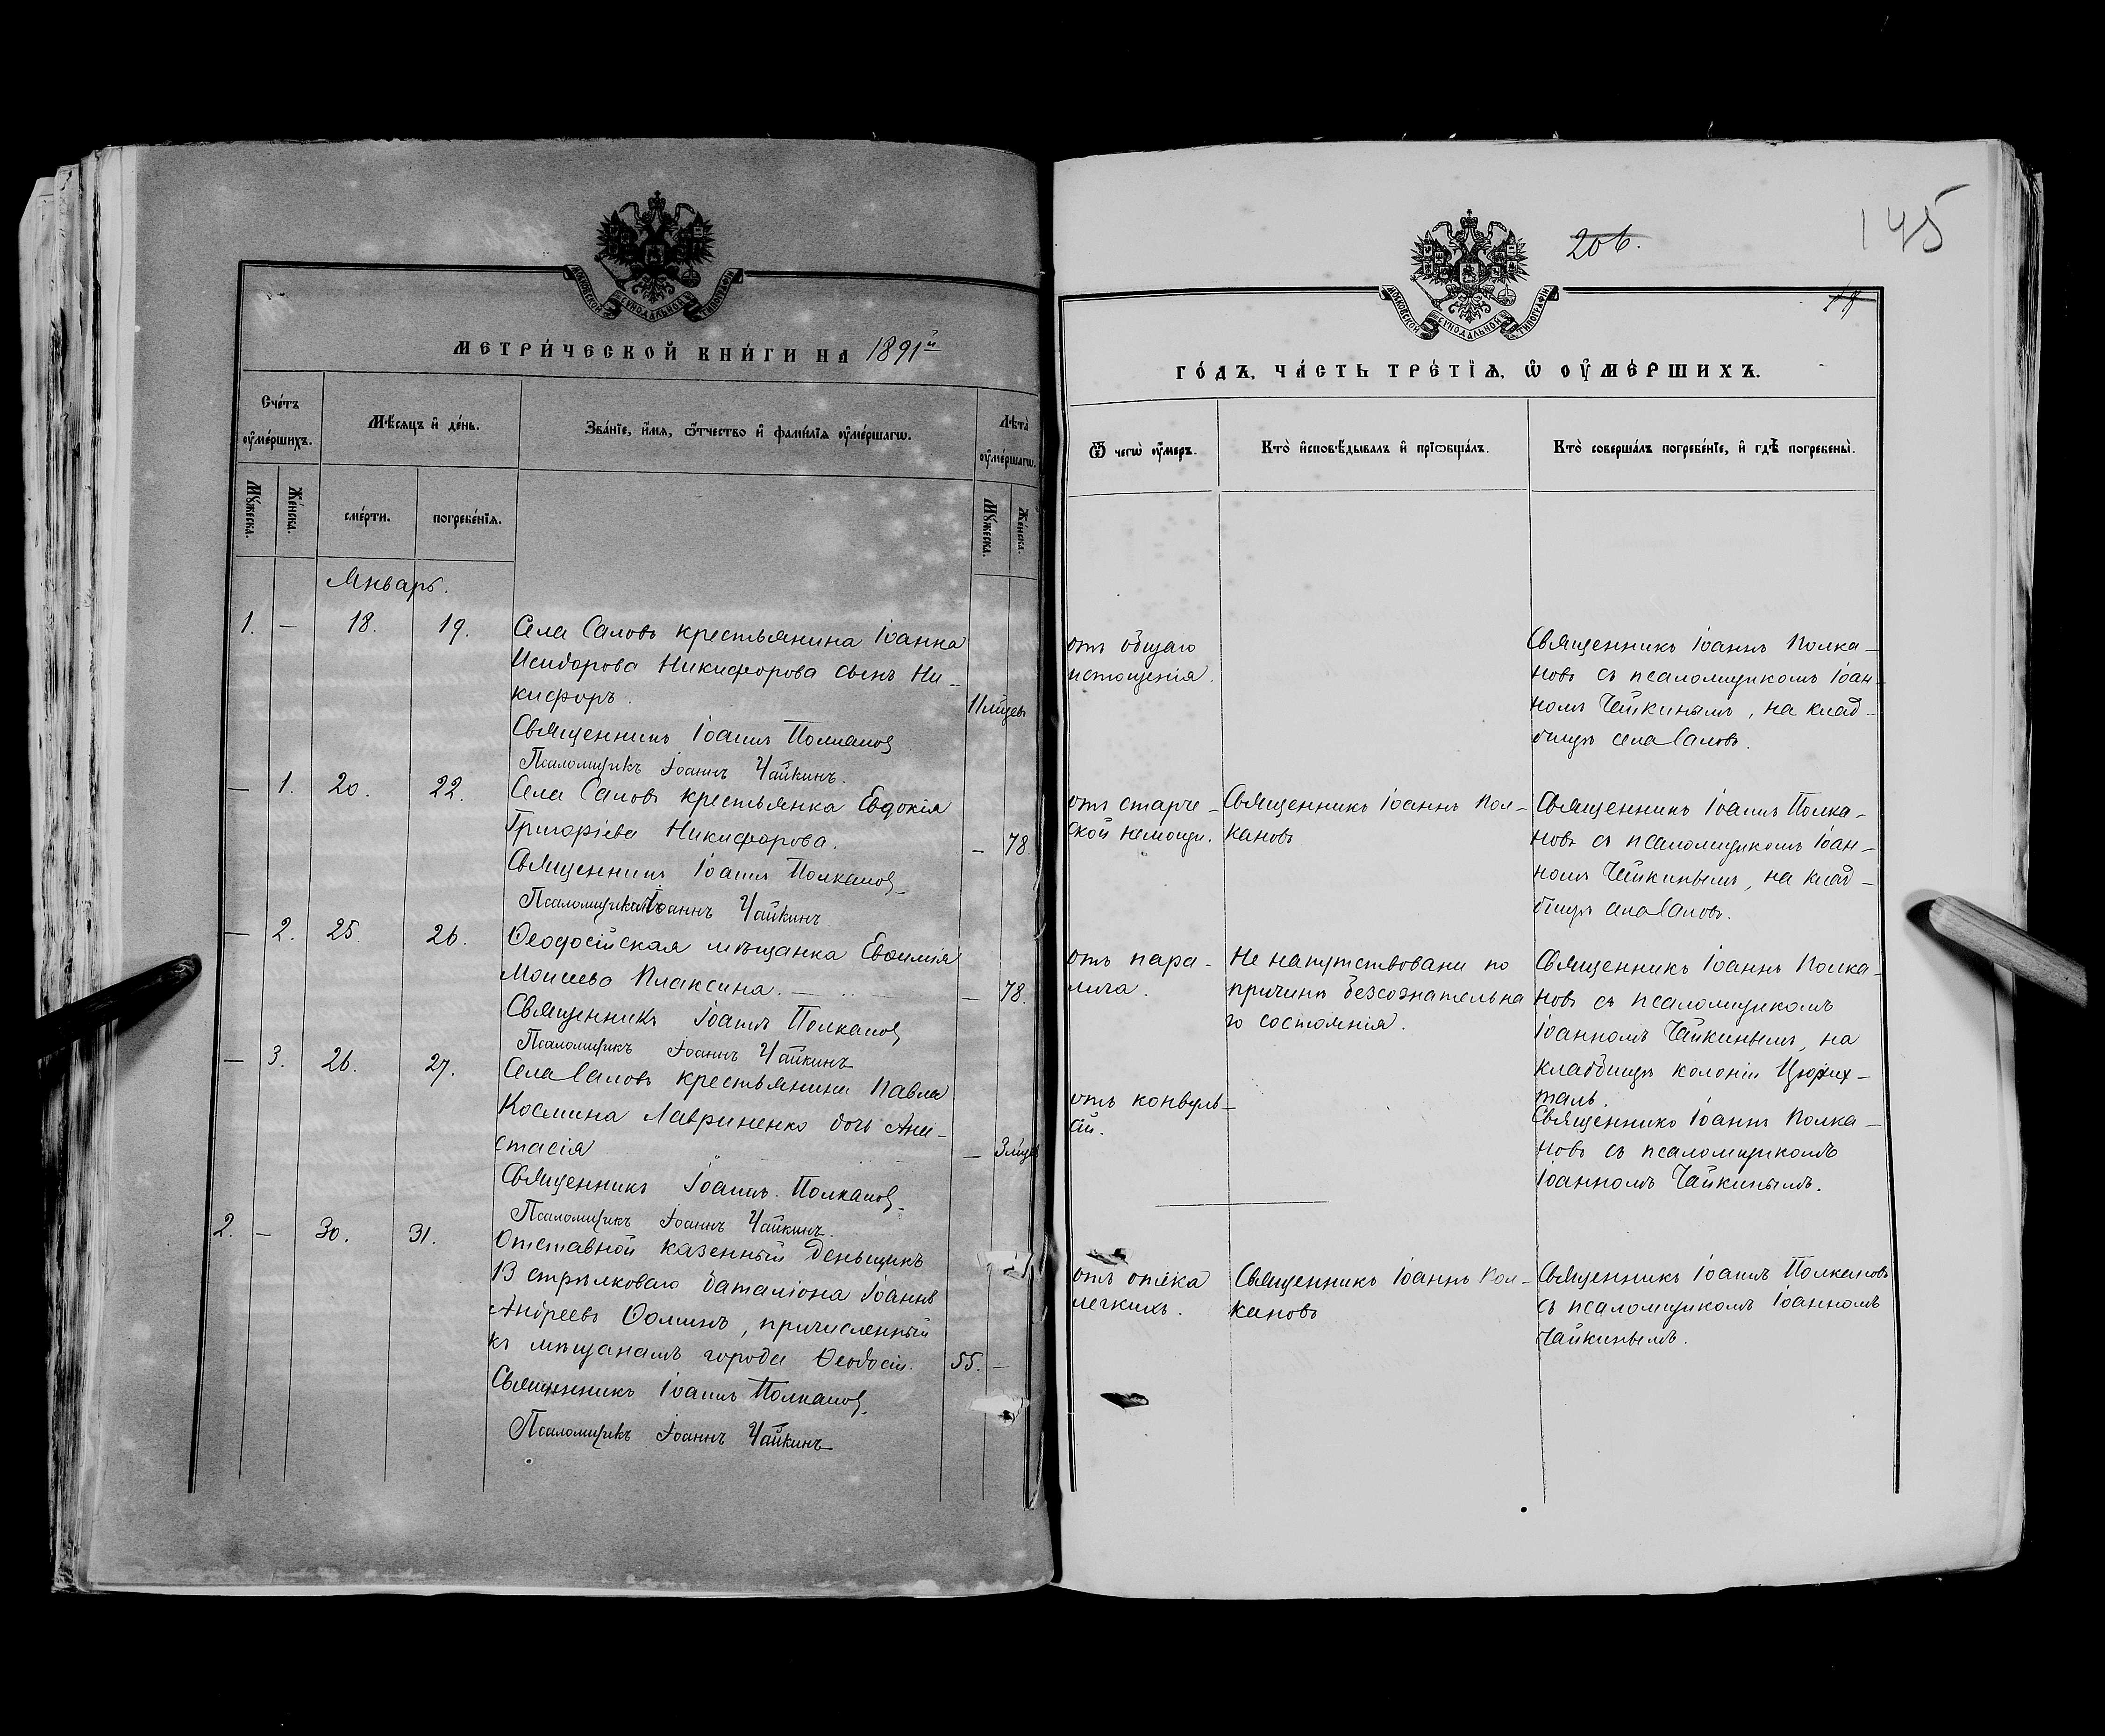 МОСКОВСКОЙ СѴНОДАЛЬНОЙ ТИПОГРАФІИ
МЕТРИ́ЧЕСКОЙ КНИ́ГИ НА 1891й
Сче́тъ ᲂу҆ме́ршихъ.
Мѣ́сяцъ и҆ де́нь.
Зва́нїе, и҆́мя, ѻ҆́тчество и҆ фами́лїя ᲂу҆ме́ршагѡ.
Лѣ́та ᲂу҆ме́ршагѡ.
Мꙋ́жеска.
Же́нска.
сме́рти.
погребе́нїѧ.
Мꙋ́жеска.
Же́нска.
Январь.
1. — 18. 19. Села Саловъ крестьянина Іоанна
Исидорова Никифорова сынъ Ни-
кифоръ.
Священникъ Іоаннъ Полкановъ
Псаломщикъ Іоаннъ Чайкинъ.
— 1. 20. 22. Села Саловъ крестьянка Евдокія
Григоріева Никифорова. — 78.
Священникъ Іоаннъ Полкановъ
Псаломщикъ Іоаннъ Чайкинъ
— 2. 25. 26. Ѳеодосійская мѣщанка Евѳимія
Моисеева Плаксина. — — 78.
Священникъ Іоаннъ Полкановъ
Псаломщикъ Іоаннъ Чайкинъ
— 3. 26. 27. Села Саловъ крестьянина Павла
Космина Лавриненко дочь Ана-
стасія — 3 мѣсяц
Священникъ Іоаннъ Полкановъ
Псаломщикъ Іоаннъ Чайкинъ.
2. — 30. 31. Отставной казенный деньщикъ
13 стрѣлковаго баталіона Іоаннъ
Андреевъ Ѳоминъ, причисленный
къ мѣщанамъ города Ѳеодосіи. 55. —
Священникъ Іоаннъ Полкановъ
Псаломщикъ Іоаннъ Чайкинъ
206.
145
МОСКОВСКОЙ СѴНОДАЛЬНОЙ ТИПОГРАФІИ
ГО́ДЪ, ЧА́СТЬ ТРЕ́ТЇѦ, Ѡ҆ ОУ҆МЕ́РШИХЪ.
Ѿ чегѡ̀ ᲂу҆́меръ.
Кто̀ и҆сповѣ́дывалъ и҆ прїѡбща́лъ.
Кто̀ соверша́лъ погребе́нїе, и҆ гдѣ̀ погребены̀.
отъ общаго
истощенія.
Священникъ Іоаннъ Полка-
новъ съ псаломщикомъ Іоан-
номъ Чайкинымъ, на клад-
бищѣ села Саловъ.
отъ старче-
ской немощи.
Священникъ Іоаннъ Пол-
кановъ
Священникъ Іоаннъ Полка-
новъ съ псаломщикомъ Іоан-
номъ Чайкинымъ, на клад-
бищѣ села Саловъ.
отъ пара-
лича.
Не напутствована по
причинѣ безсознательна
го состоянія.
Священникъ Іоаннъ Полка-
новъ съ псаломщикомъ
Іоанномъ Чайкинымъ, на
кладбищѣ колоніи Цюрих-
таль.
отъ конвуль-
сій.
Священникъ Іоаннъ Полка-
новъ съ псаломщикомъ
Іоанномъ Чайкинымъ.
отъ отека
легкихъ.
Священникъ Іоаннъ Пол-
кановъ
Священникъ Іоаннъ Полкановъ
съ псаломщикомъ Іоанномъ
Чайкинымъ.